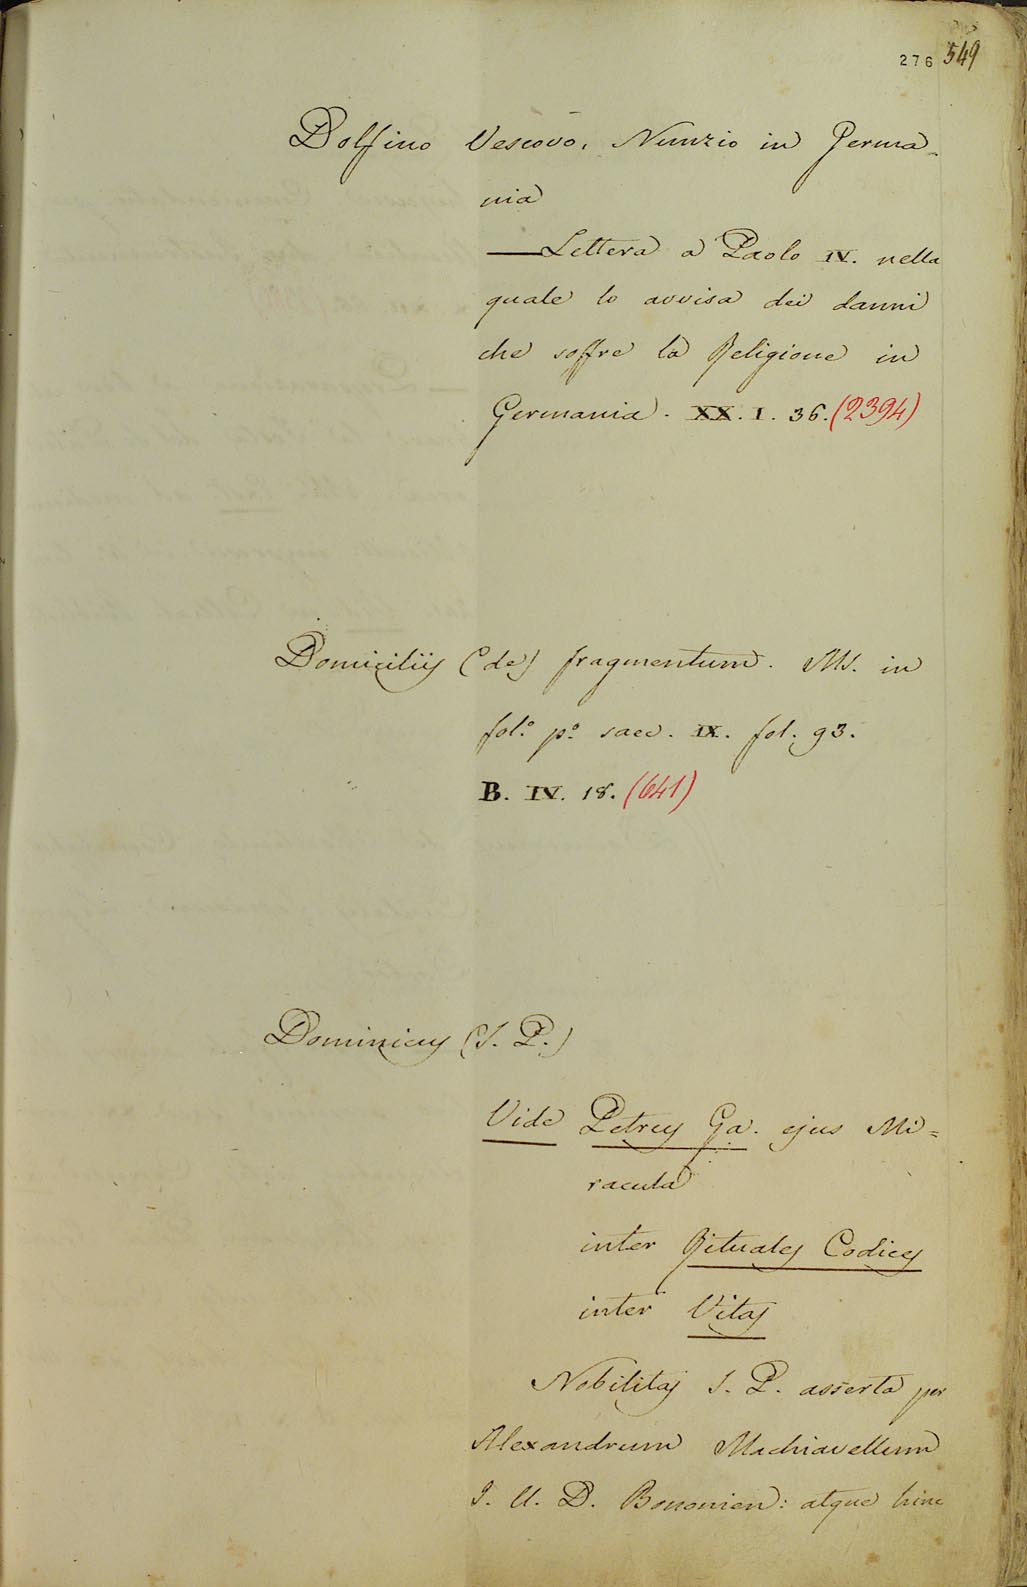 276 549
Dolfino Vescovo, Nunzio in Germa-
nia
— Lettera a Paolo IV. nella
quale lo avvisa dei danni
che soffre la Religione in
Germania. XX. I. 36. (2394)
Domiciliis (de) fragmentum. MS. in
fol.º p.º saec. IX. fol. 93.
B. IV. 18. (641)
Dominicus (S. P.)
Vide Petrus Ga. ejus Mi=
racula
inter Rituales Codices
inter Vitas
Nobilitas S. P. asserta per
Alexandrum Machiavellum
J. U. D. Bononien: atque hinc